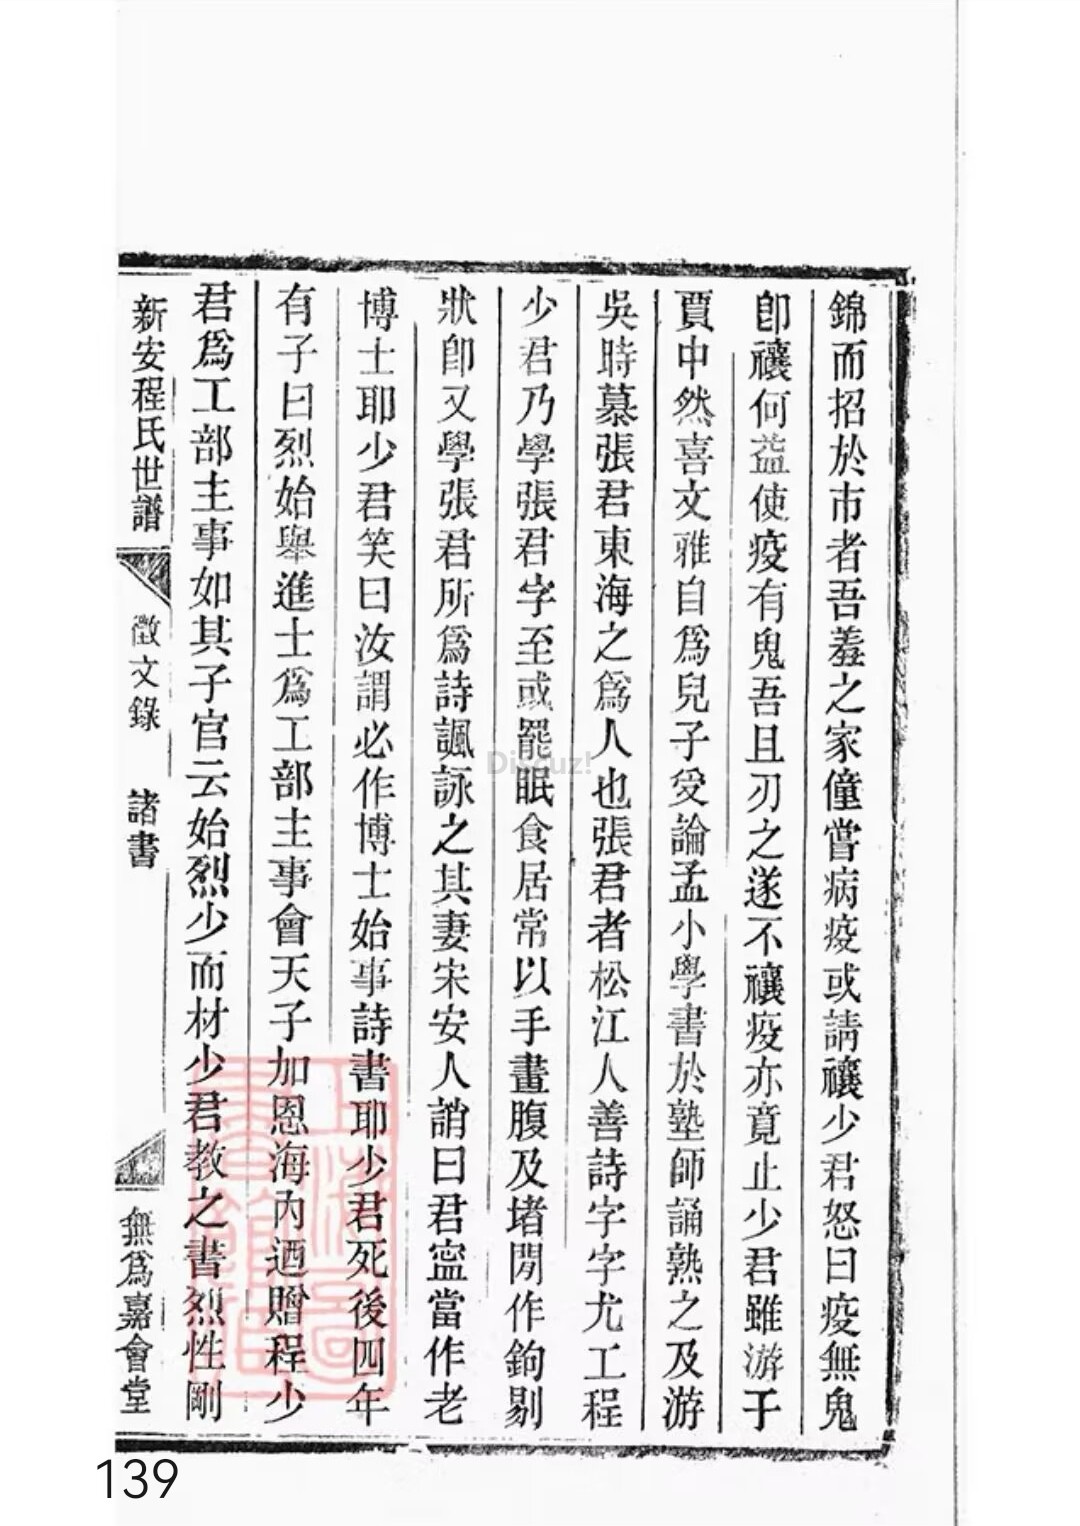 錦而招於市者吾羞之家僮嘗病疫或請禳少君怒曰疫無鬼
卽禳何益使疫有鬼吾且刃之遂不禳疫亦竟止少君雖游于
賈中然喜文雅自爲兒子受論孟小學書於塾師誦熟之及游
吳時慕張君東海之爲人也張君者松江人善詩字字尤工程
少君乃學張君字至或罷眠食居常以手畫腹及堵閒作鉤剔
狀卽又學張君所爲詩諷詠之其妻宋安人誚曰君寍當作老
博士耶少君笑曰汝謂必作博士始事詩書耶少君死後四年
有子曰烈始舉進士爲工部主事會天子加恩海內迺贈程少
君爲工部主事如其子官云始烈少而材少君教之書烈性剛
新安程氏世譜
徵文錄
諸書
無爲嘉會堂
上海圖書館藏
Discuz!
139